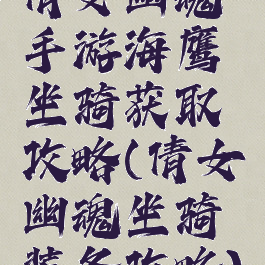 倩女幽魂
手游海鹰
坐骑获取
攻略(倩女
幽魂坐骑
装备攻略)